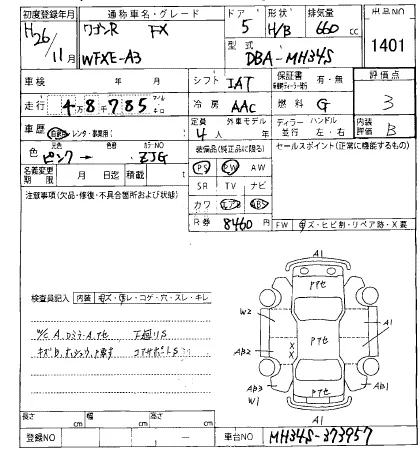 初度登録年月 通称車名・グレード ドア 形状 排気量 出品NO
H26/11月 ワゴンR FX 5 H/B 660cc 1401
WFXE-A3 型式 DBA-MH34S
車検 年 月 シフト IAT 保証書 有・無 評価点
走行 4万8千785 冷房 AAC 燃料 G 3
車歴 自家用 レンタ・事業用( ) 定員 4人 外車モデル 年 ディーラー 並行 ハンドル 左・右 内装評価 B
色 元色 ピンク→ 色替 カラーNO ZJG 装備品(純正品に限る) セールスポイント(正常に機能するもの)
名義変更期限 月 日迄 積載 t PS PW AW
SR TV ナビ
注意事項(欠品・修復・不具合箇所および状態) カワ エアB ABS
R券 8460円 FW キズ・ヒビ割・リペア跡・X要
検査員記入 内装 キズ・ヨゴレ・コゲ・穴・スレ・キレ
下廻りS
A1
Pアセ
W2 A1
Pアセ
X
X
AB2 AB2
AB3 Pアセ AB1
W1
A1
長さ cm 幅 cm 高さ cm
登録NO 車台NO MH34S-373957